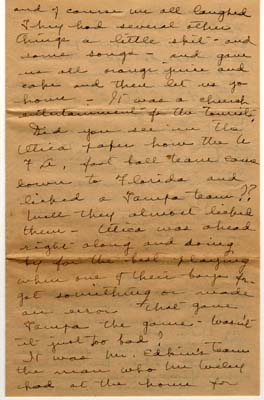 and of course we all laughed
They had several other
things a little skit - and
some songs - and gave
us all orange juice and
cake and then let us go
home - It was a church
entertainment for the Tourists.
Did you see in the
Utica paper how the U
F A, foot ball team came
down to Florida and
licked a Tampa team??
Well they almost licked
them - Utica was ahead
right along and doing
by far the best playing
when one of their boys for-
got something or made
an error that gave
Tampa the game - Wasn't
it just too bad?
It was Mr. Edkin's team
the man who Mr Wesley
had at the home for